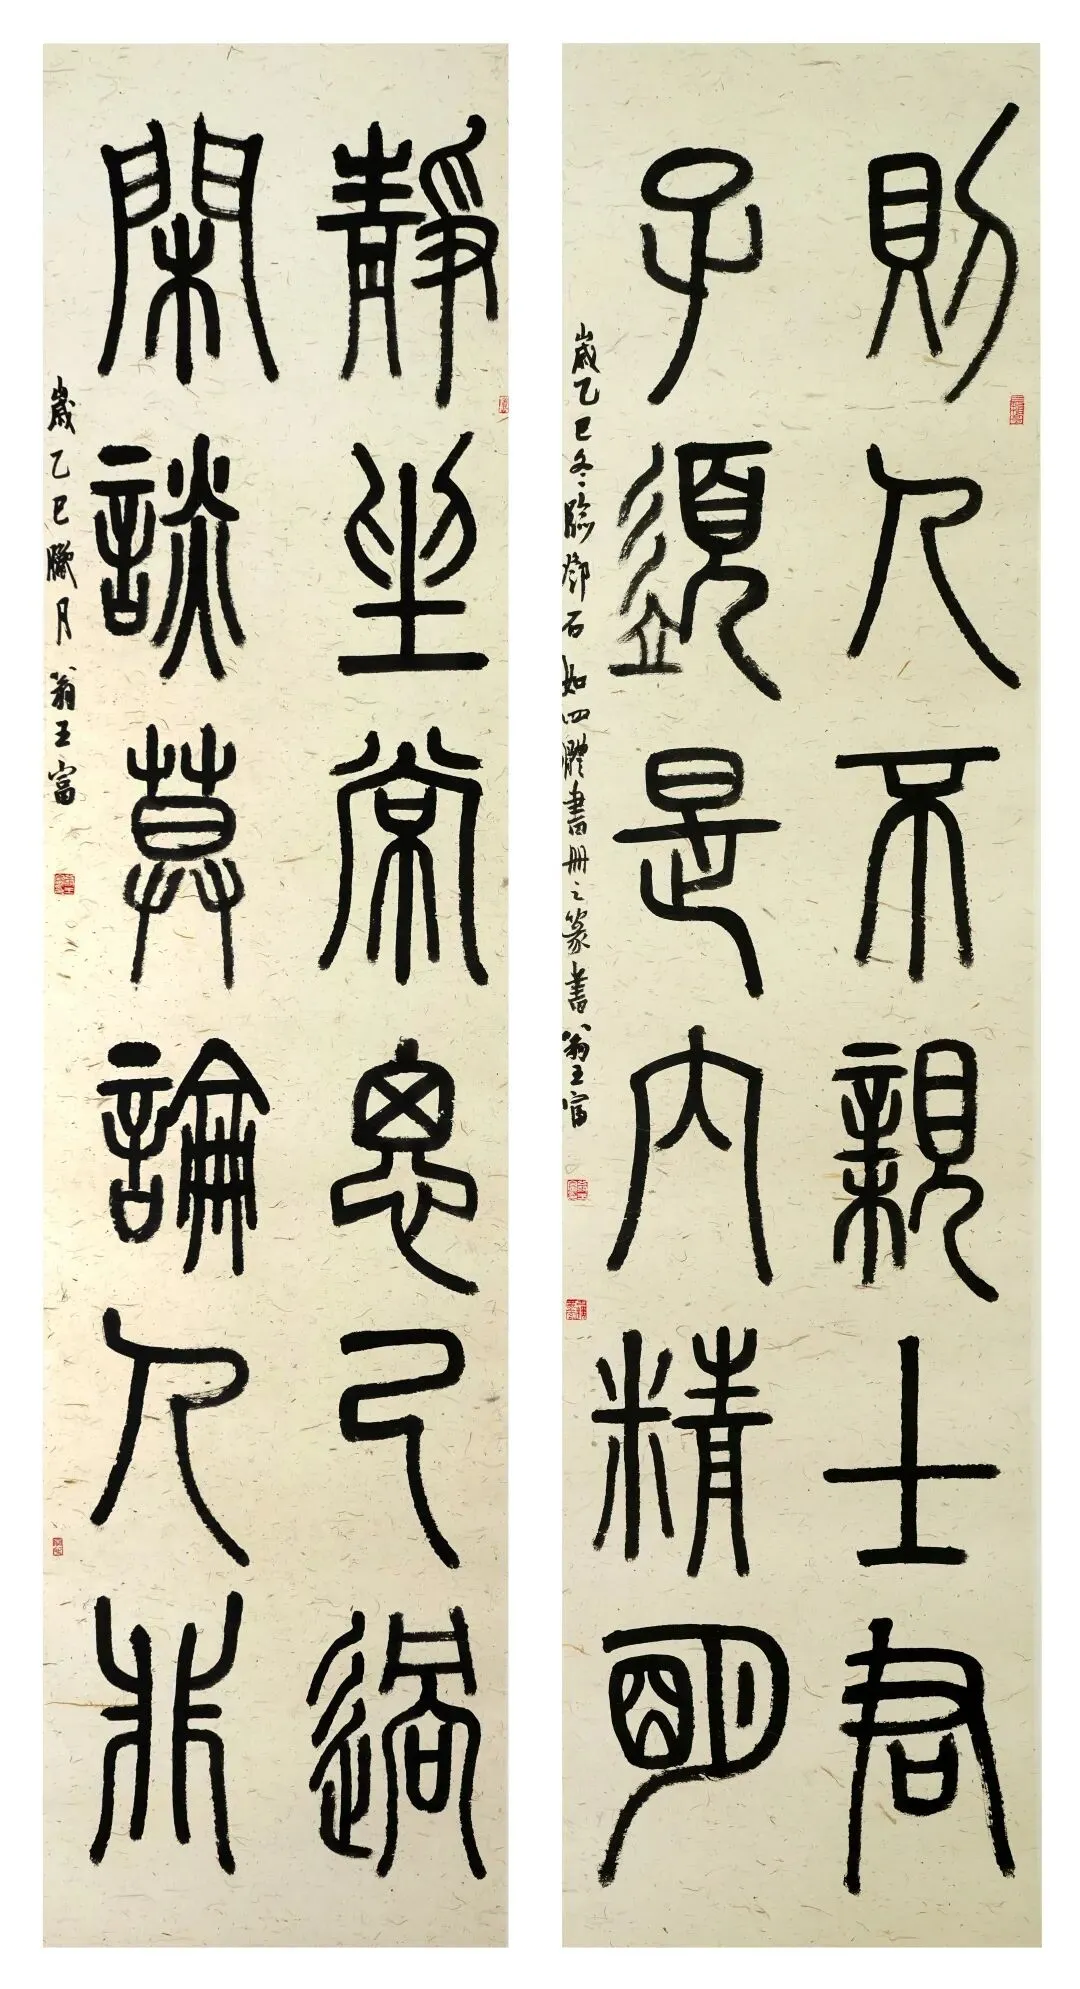 則人不親士君
子須是內精明
歲乙巳冬臨鄧石如四體書冊之篆書翁王富
靜坐常思己過
閑談莫論人非
歲乙巳臘月翁王富